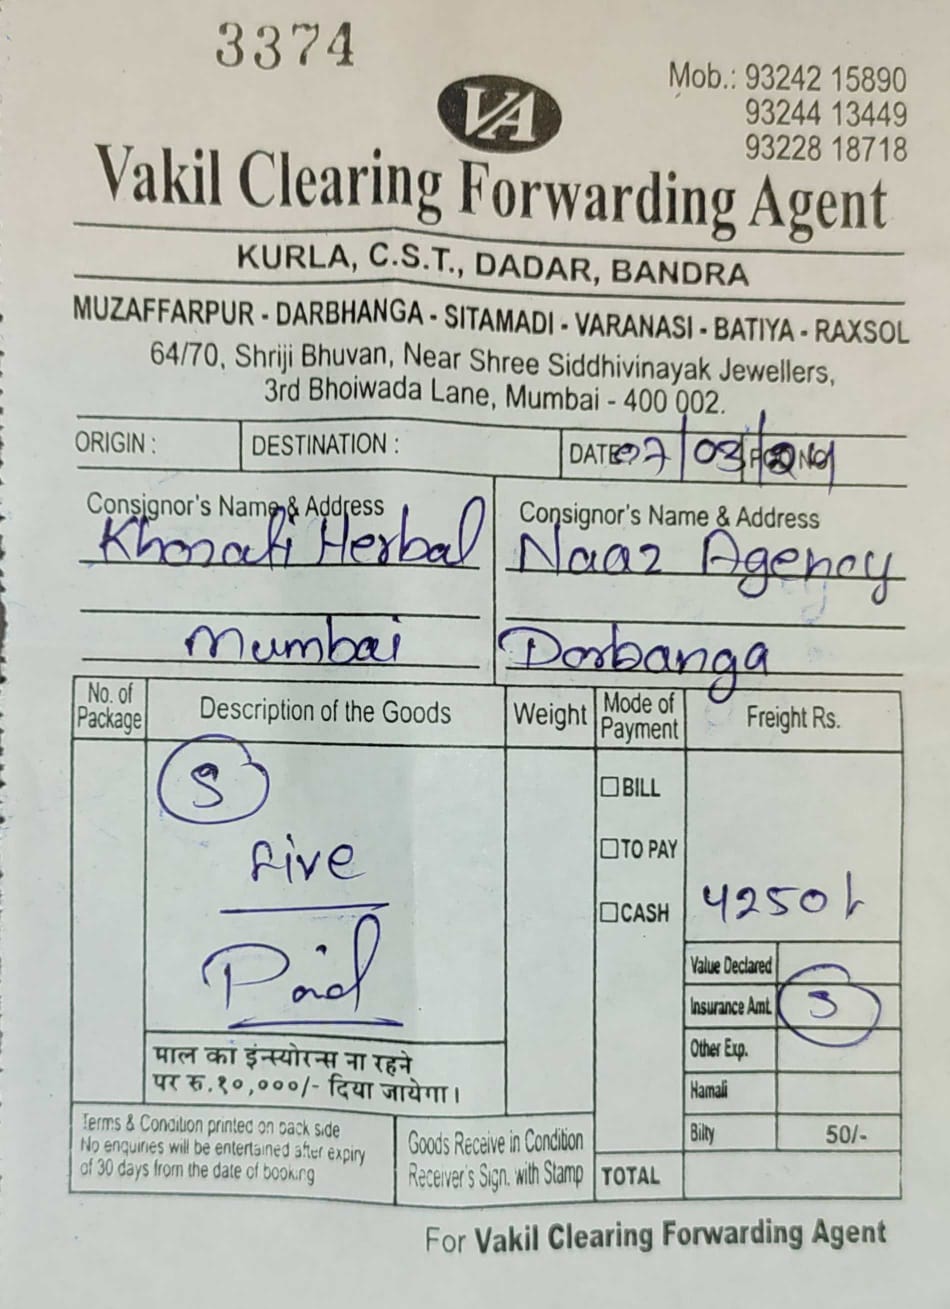 3374
Mob.: 93242 15890
93244 13449
93228 18718
VA
Vakil Clearing Forwarding Agent
KURLA, C.S.T., DADAR, BANDRA
MUZAFFARPUR - DARBHANGA - SITAMADI - VARANASI - BATIYA - RAXSOL
64/70, Shriji Bhuvan, Near Shree Siddhivinayak Jewellers,
3rd Bhoiwada Lane, Mumbai - 400 002.
ORIGIN : DESTINATION : DATE 07/03/24
Consignor's Name & Address Consignor's Name & Address
Herbal Naaz Agency
Mumbai Dorbanga
No. of Package Description of the Goods Weight Mode of Payment Freight Rs.
5
BILL
five
TO PAY
CASH 4250/-
Paid
Value Declared
Insurance Amt. 5
Other Exp.
माल का इंन्स्योरन्स ना रहने
पर रु.१०,०००/- दिया जायेगा।
Hamali
Bilty 50/-
Terms & Condition printed on back side
No enquiries will be entertained after expiry
of 30 days from the date of booking
Goods Receive in Condition
Receiver's Sign. with Stamp
TOTAL
For Vakil Clearing Forwarding Agent